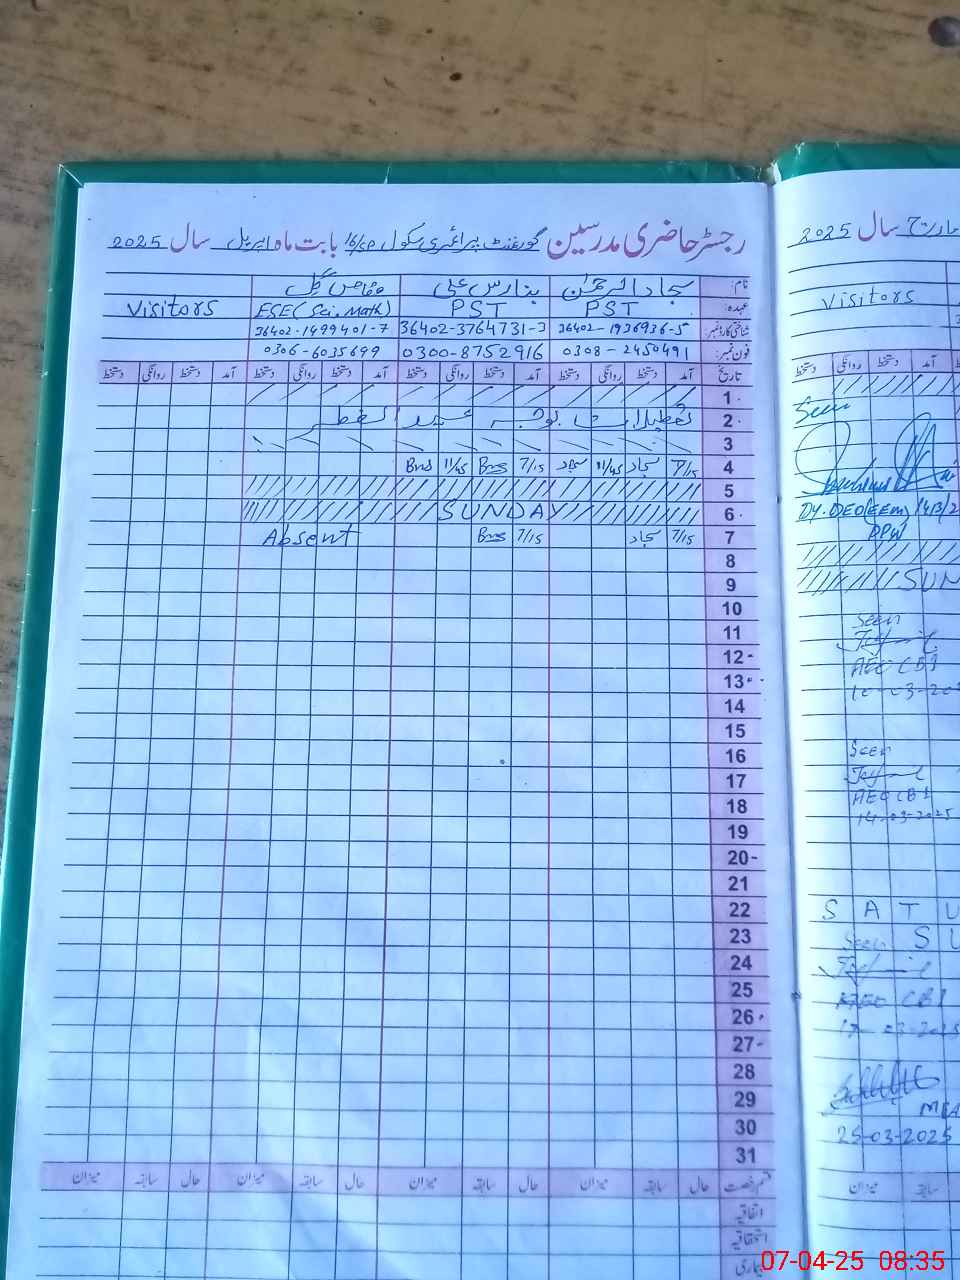 رجسٹر حاضری مدرسین گورنمنٹ پرائمری سکول 16/ بابت ماہ اپریل سال 2025
نام: سجاد الرحمٰن بنارس علی گل
عہدہ: PST PST ESE (Sci. Math) Visitors
شناختی کارڈ نمبر: 36402-1936936-5 36402-3764731-3 36402-1499401-7
فون نمبر: 0308-2450491 0300-8752916 0306-6035699
تاریخ آمد دستخط روانگی دستخط آمد دستخط روانگی دستخط آمد دستخط روانگی دستخط آمد دستخط روانگی دستخط
1
2 تعطیلات بوجہ عید الفطر
3
4 7/15 سجاد 11/45 سجاد 7/15 Bns 11/45 Bns
5
6 SUNDAY
7 7/15 سجاد 7/15 Bns Absent
8
9
10
11
12
13
14
15
16
17
18
19
20
21
22
23
24
25
26
27
28
29
30
31
قسم رخصت حال سابقہ میزان حال سابقہ میزان حال سابقہ میزان حال سابقہ میزان
اتفاقیہ
استحقاقیہ
بیماری
مارچ سال 2025
Visitors
آمد دستخط روانگی دستخط
Seen
Dy. DEO (EEM)
SUN
Seen
AEO CB1
10-03-202
Seen
AEO CB1
14-03-2025
S A T U
Seen S U
AEO CB1
17-03-2025
MEA
25-03-2025
سابقہ میزان
07-04-25 08:35